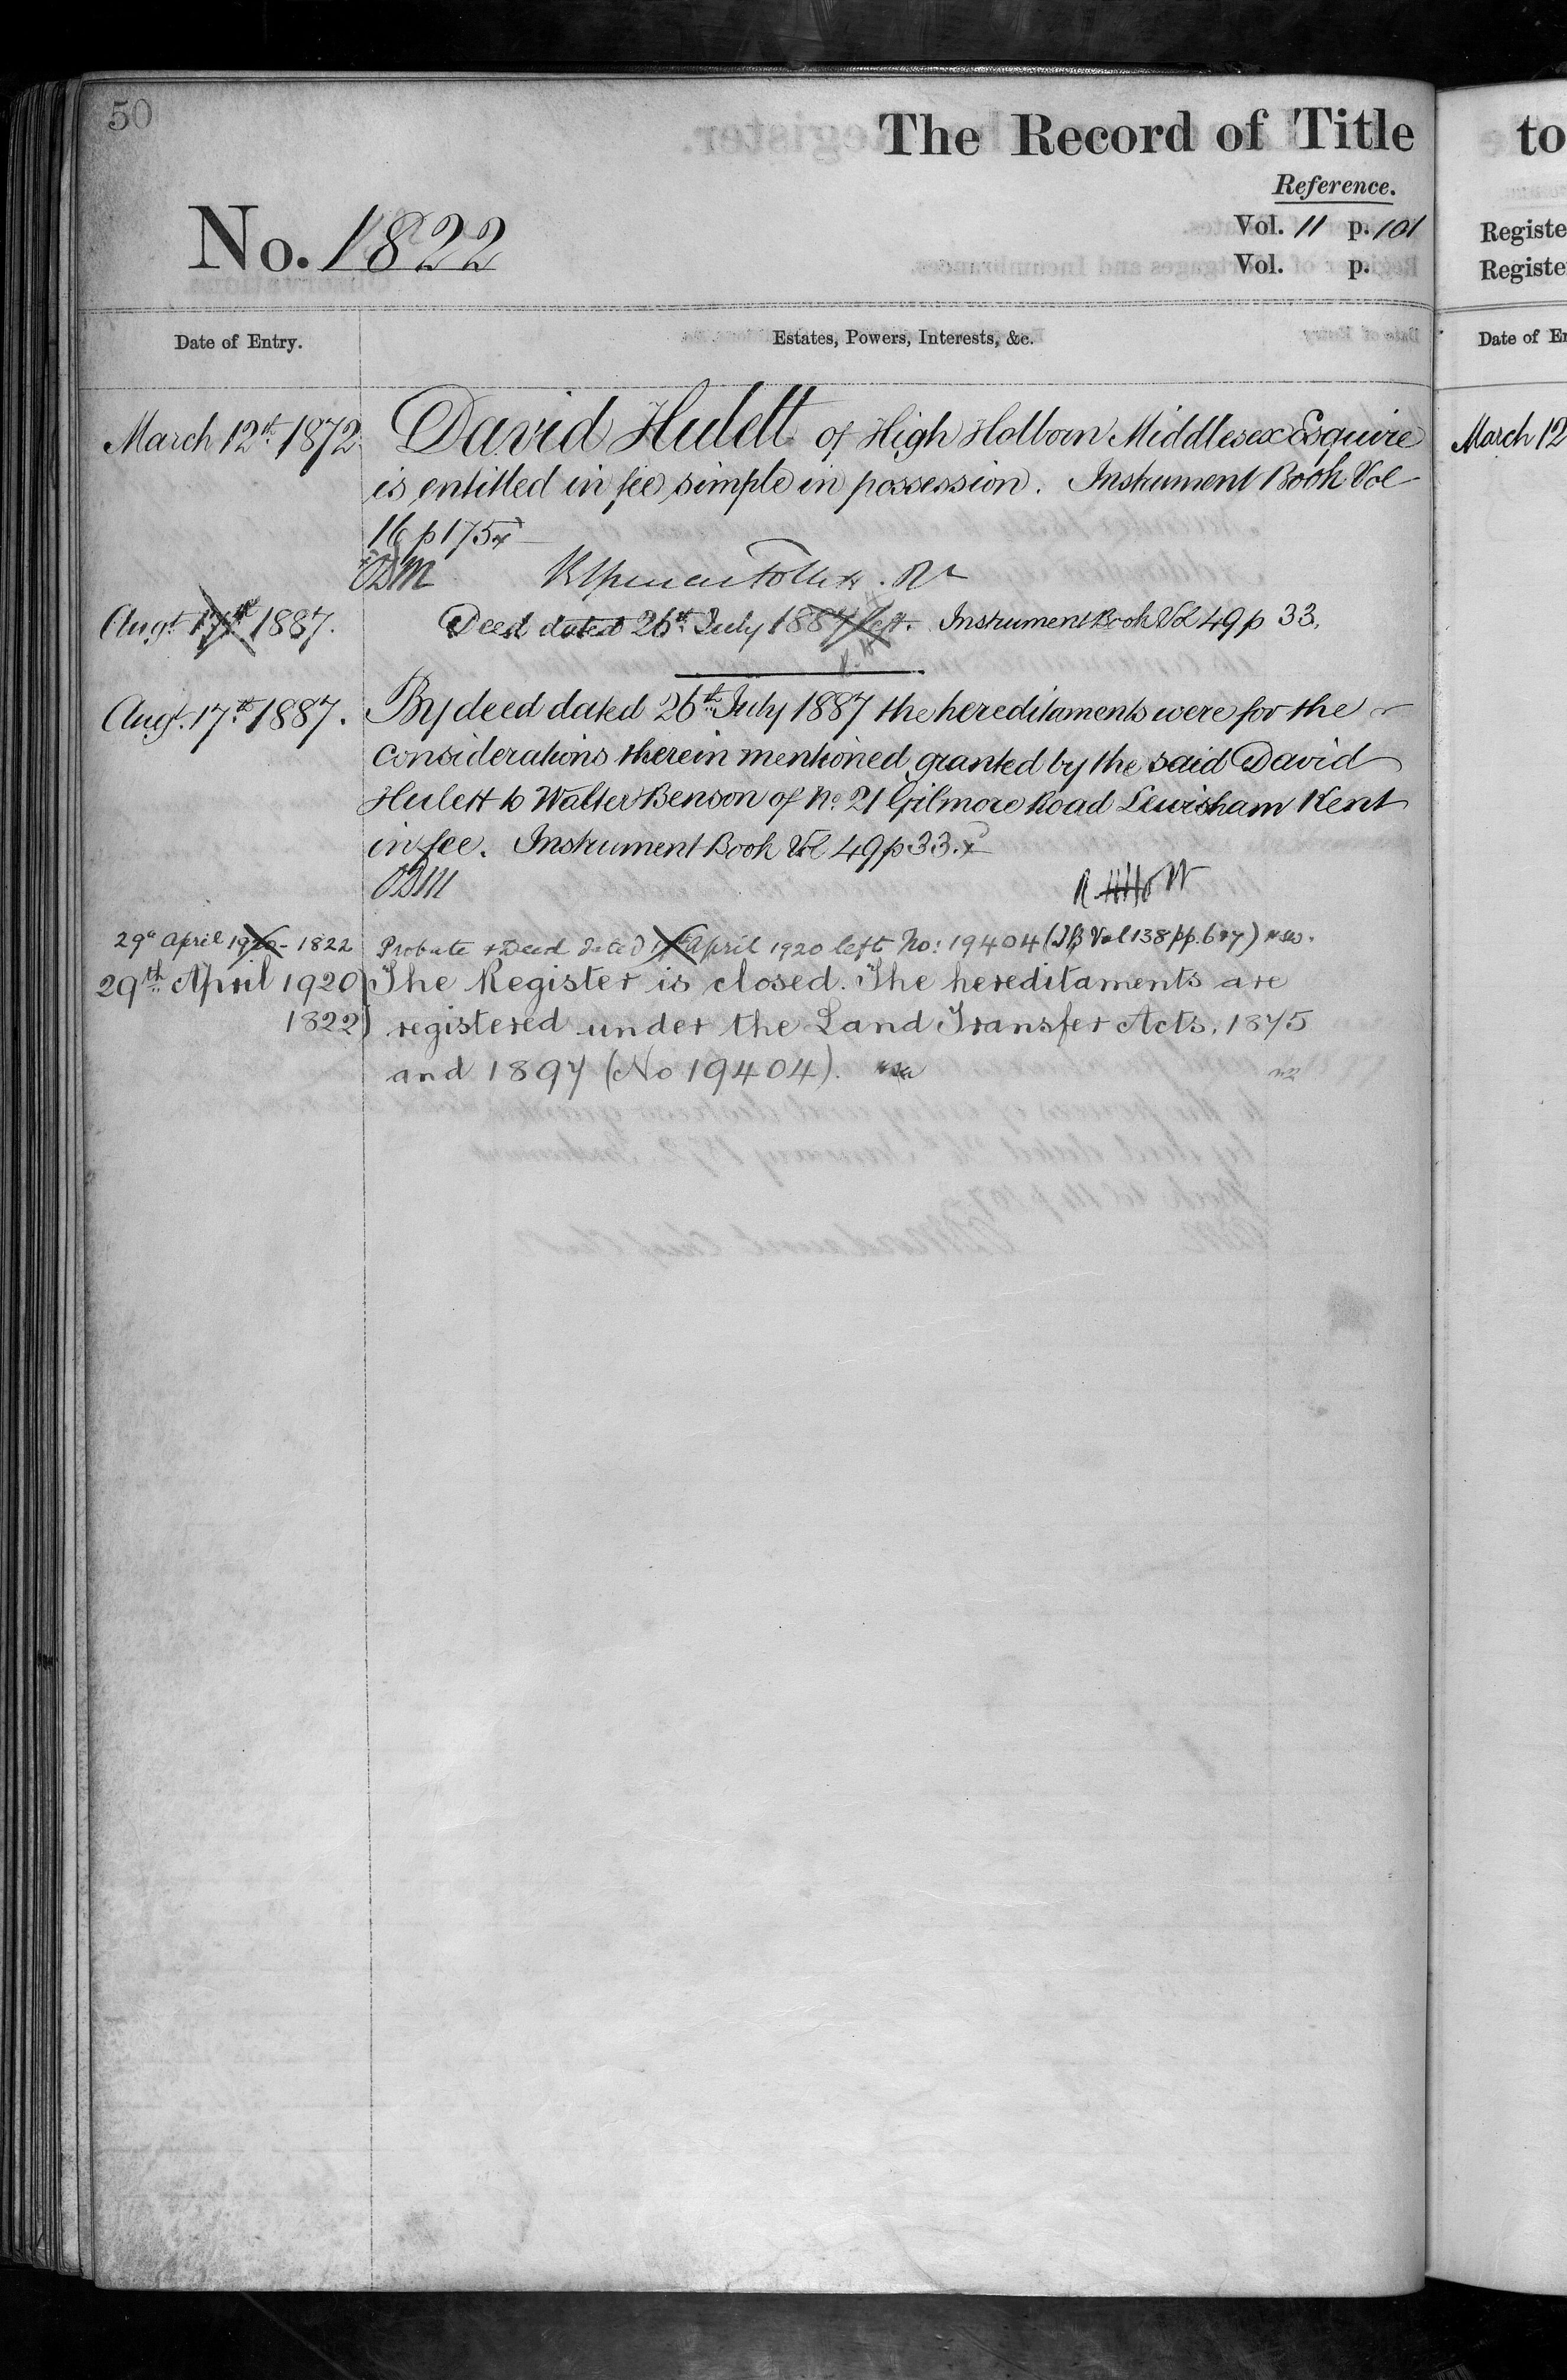 50
The Record of Title
Reference.
No. 1822
Vol. 11 p. 101
Vol. p.
Date of Entry.
Estates, Powers, Interests, &c.
March 12th 1872
David Hulett of High Holborn Middlesex Esquire
is entitled in fee simple in possession. Instrument Book Vol
16 p 175
Augt. 17th 1887.
Deed dated 26th July 1887 left. Instrument Book Vol 49 p 33.
Augt. 17th 1887.
By deed dated 26th July 1887 the hereditaments were for the
considerations therein mentioned granted by the said David
Hulett to Walter Benson of No. 21 Gilmore Road Lewisham Kent
in fee. Instrument Book Vol 49 p 33.
29th April 1920 - 1822
Probate + Deed dated April 1920 left No: 19404 (IB Vol 138 pp. 6+7)
29th April 1920
1822
The Register is closed. The hereditaments are
registered under the Land Transfer Acts, 1875
and 1897 (No 19404).
to
Registe
Registe
Date of En
March 12